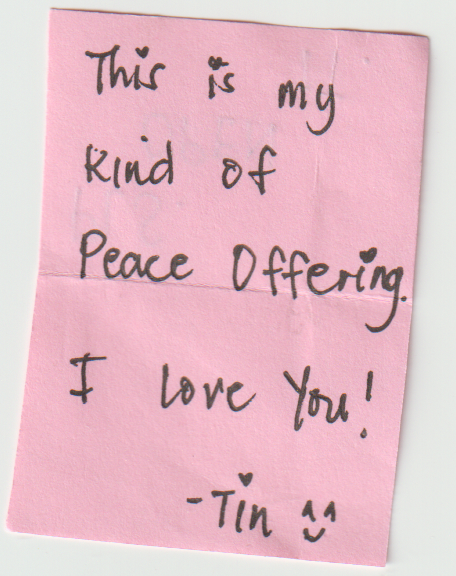 This is my
kind of
Peace Offering.
I love You!
-Tin ^^